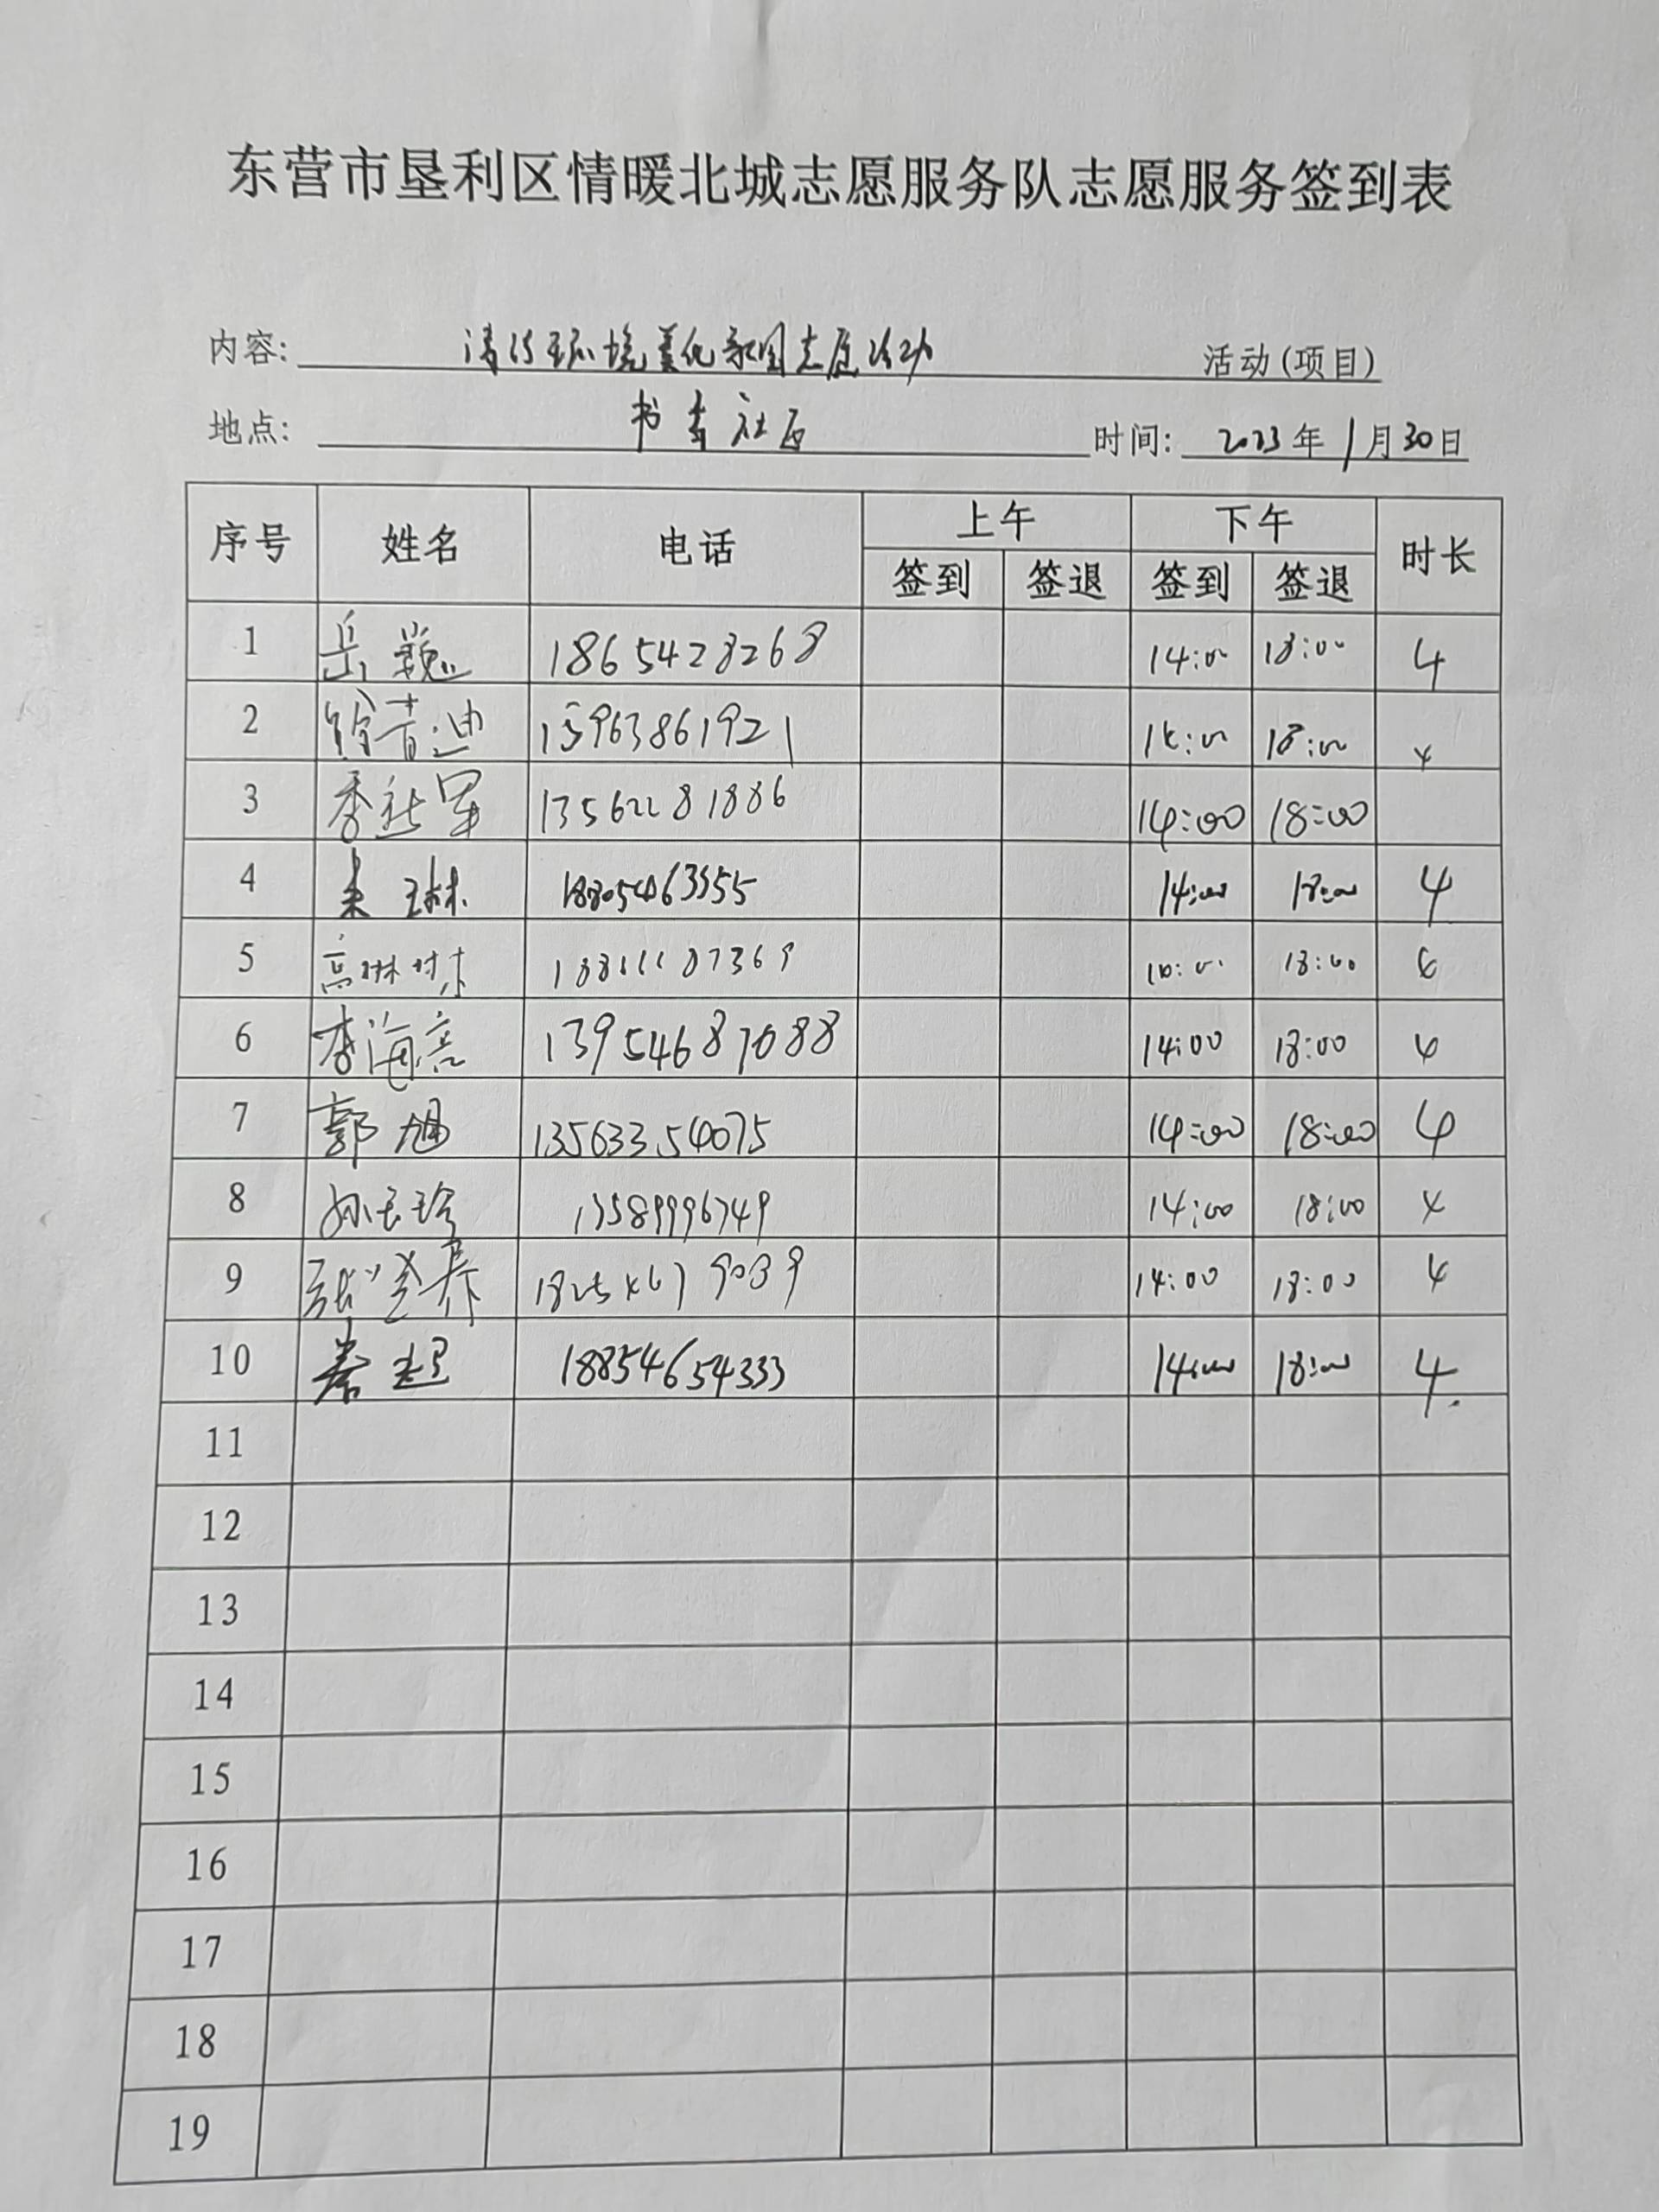 东营市垦利区情暖北城志愿服务队志愿服务签到表
内容: 清洁环境美化家园志愿活动 活动(项目)
地点: 书香社区 时间: 2023年1月30日
序号 姓名 电话 上午 下午 时长
签到 签退 签到 签退
1 岳巍 18654283268 14:00 18:00 4
2 徐青迪 15963861921 14:00 18:00 4
3 13562281886 14:00 18:00
4 14:00 18:00 4
5 高琳 18:00
6 李海亮 13954687088 14:00 18:00 4
7 郭旭 13563354075 14:00 18:00 4
8 孙玉珍 13589996749 14:00 18:00 4
9 14:00 18:00 4
10 秦超 18854654333 14:00 18:00 4.
11
12
13
14
15
16
17
18
19